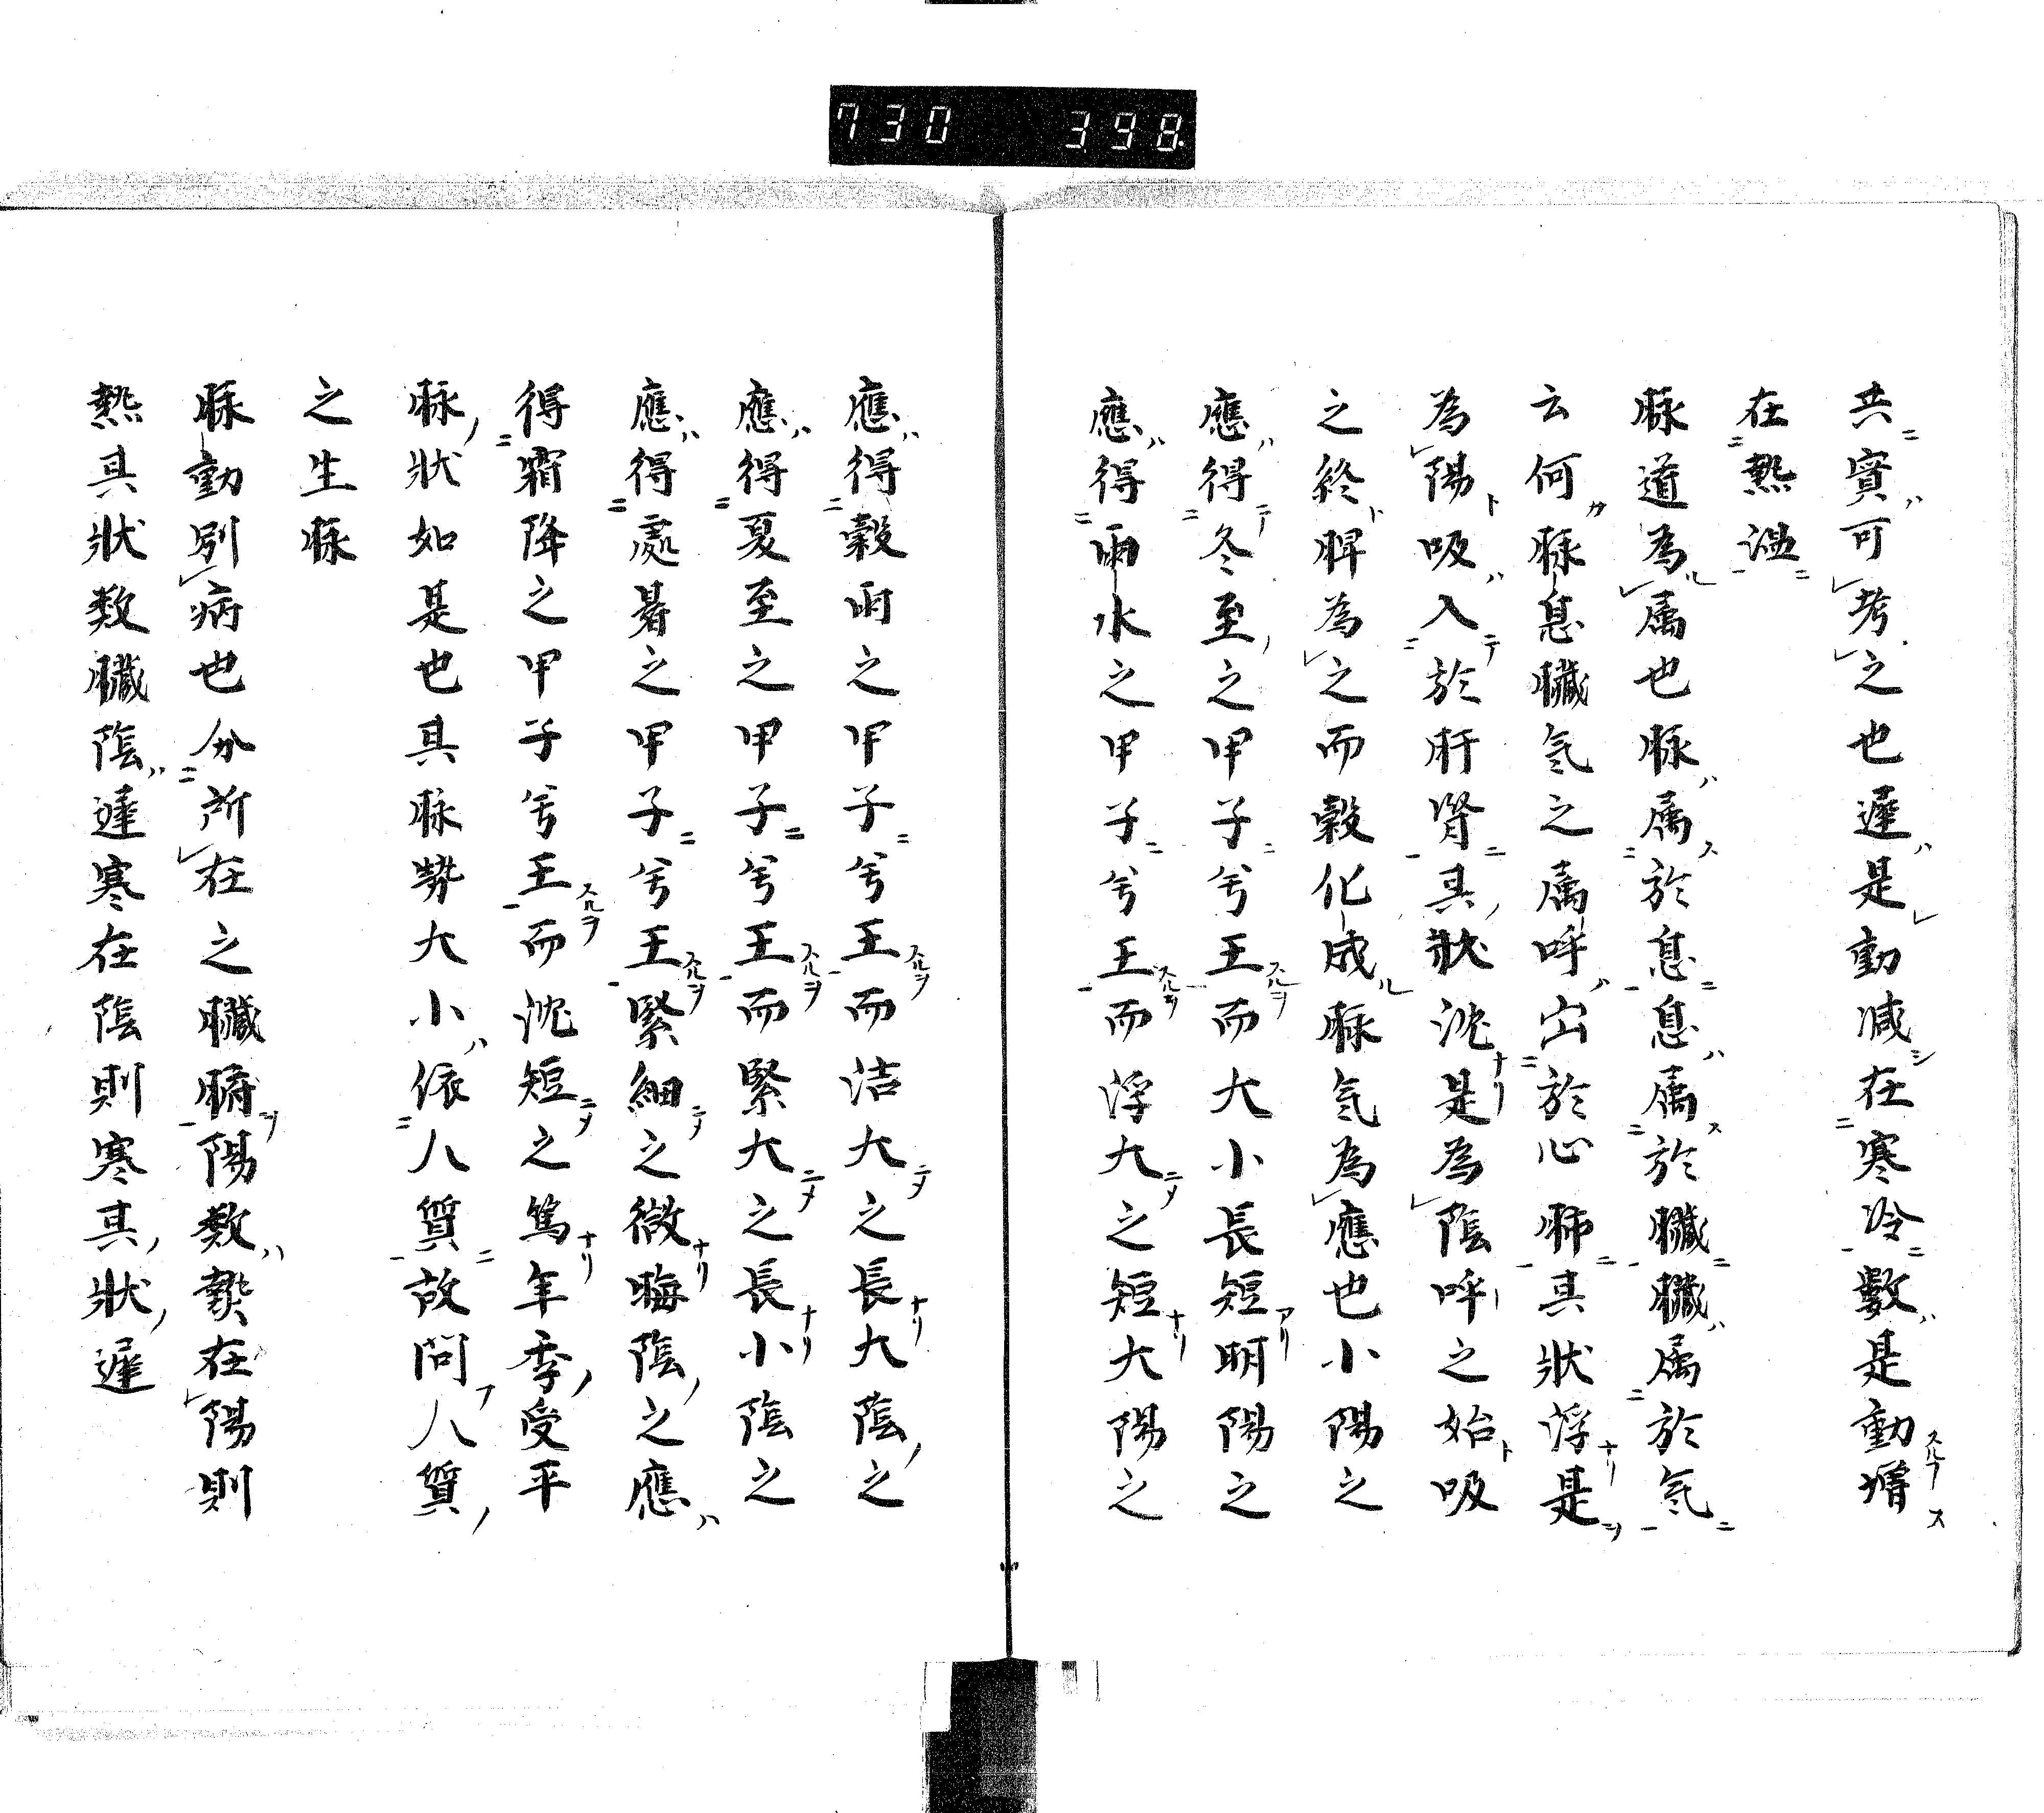 730 398
共實可考之也遲是動減在寒冷數是動増
在熱温
脉道為属也脉属於息息属於臓臓属於氣
云何脉息臓氣之属呼出於心肺其狀浮是
為陽吸入於肝腎其狀沈是為陰呼之始吸
之終脾為之而穀化成脉氣為應也小陽之
應得冬至之甲子兮王而大小長短明陽之
應得雨水之甲子兮王而浮大之短大陽之
應得穀雨之甲子兮王而洁大之長大陰之
應得夏至之甲子兮王而緊大之長小陰之
應得處暑之甲子兮王緊細之微晦陰之應
得霜降之甲子兮王而沈短之篤年季受平
脉狀如是也其脉勢大小依人質故問人質
之生脉
脉動別病也分所在之臓腑陽数熱在陽則
熱其狀数臓陰遲寒在陰則寒其狀遲